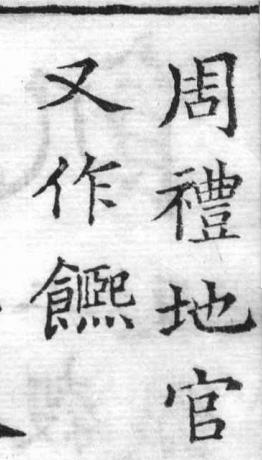 周禮地官
又作